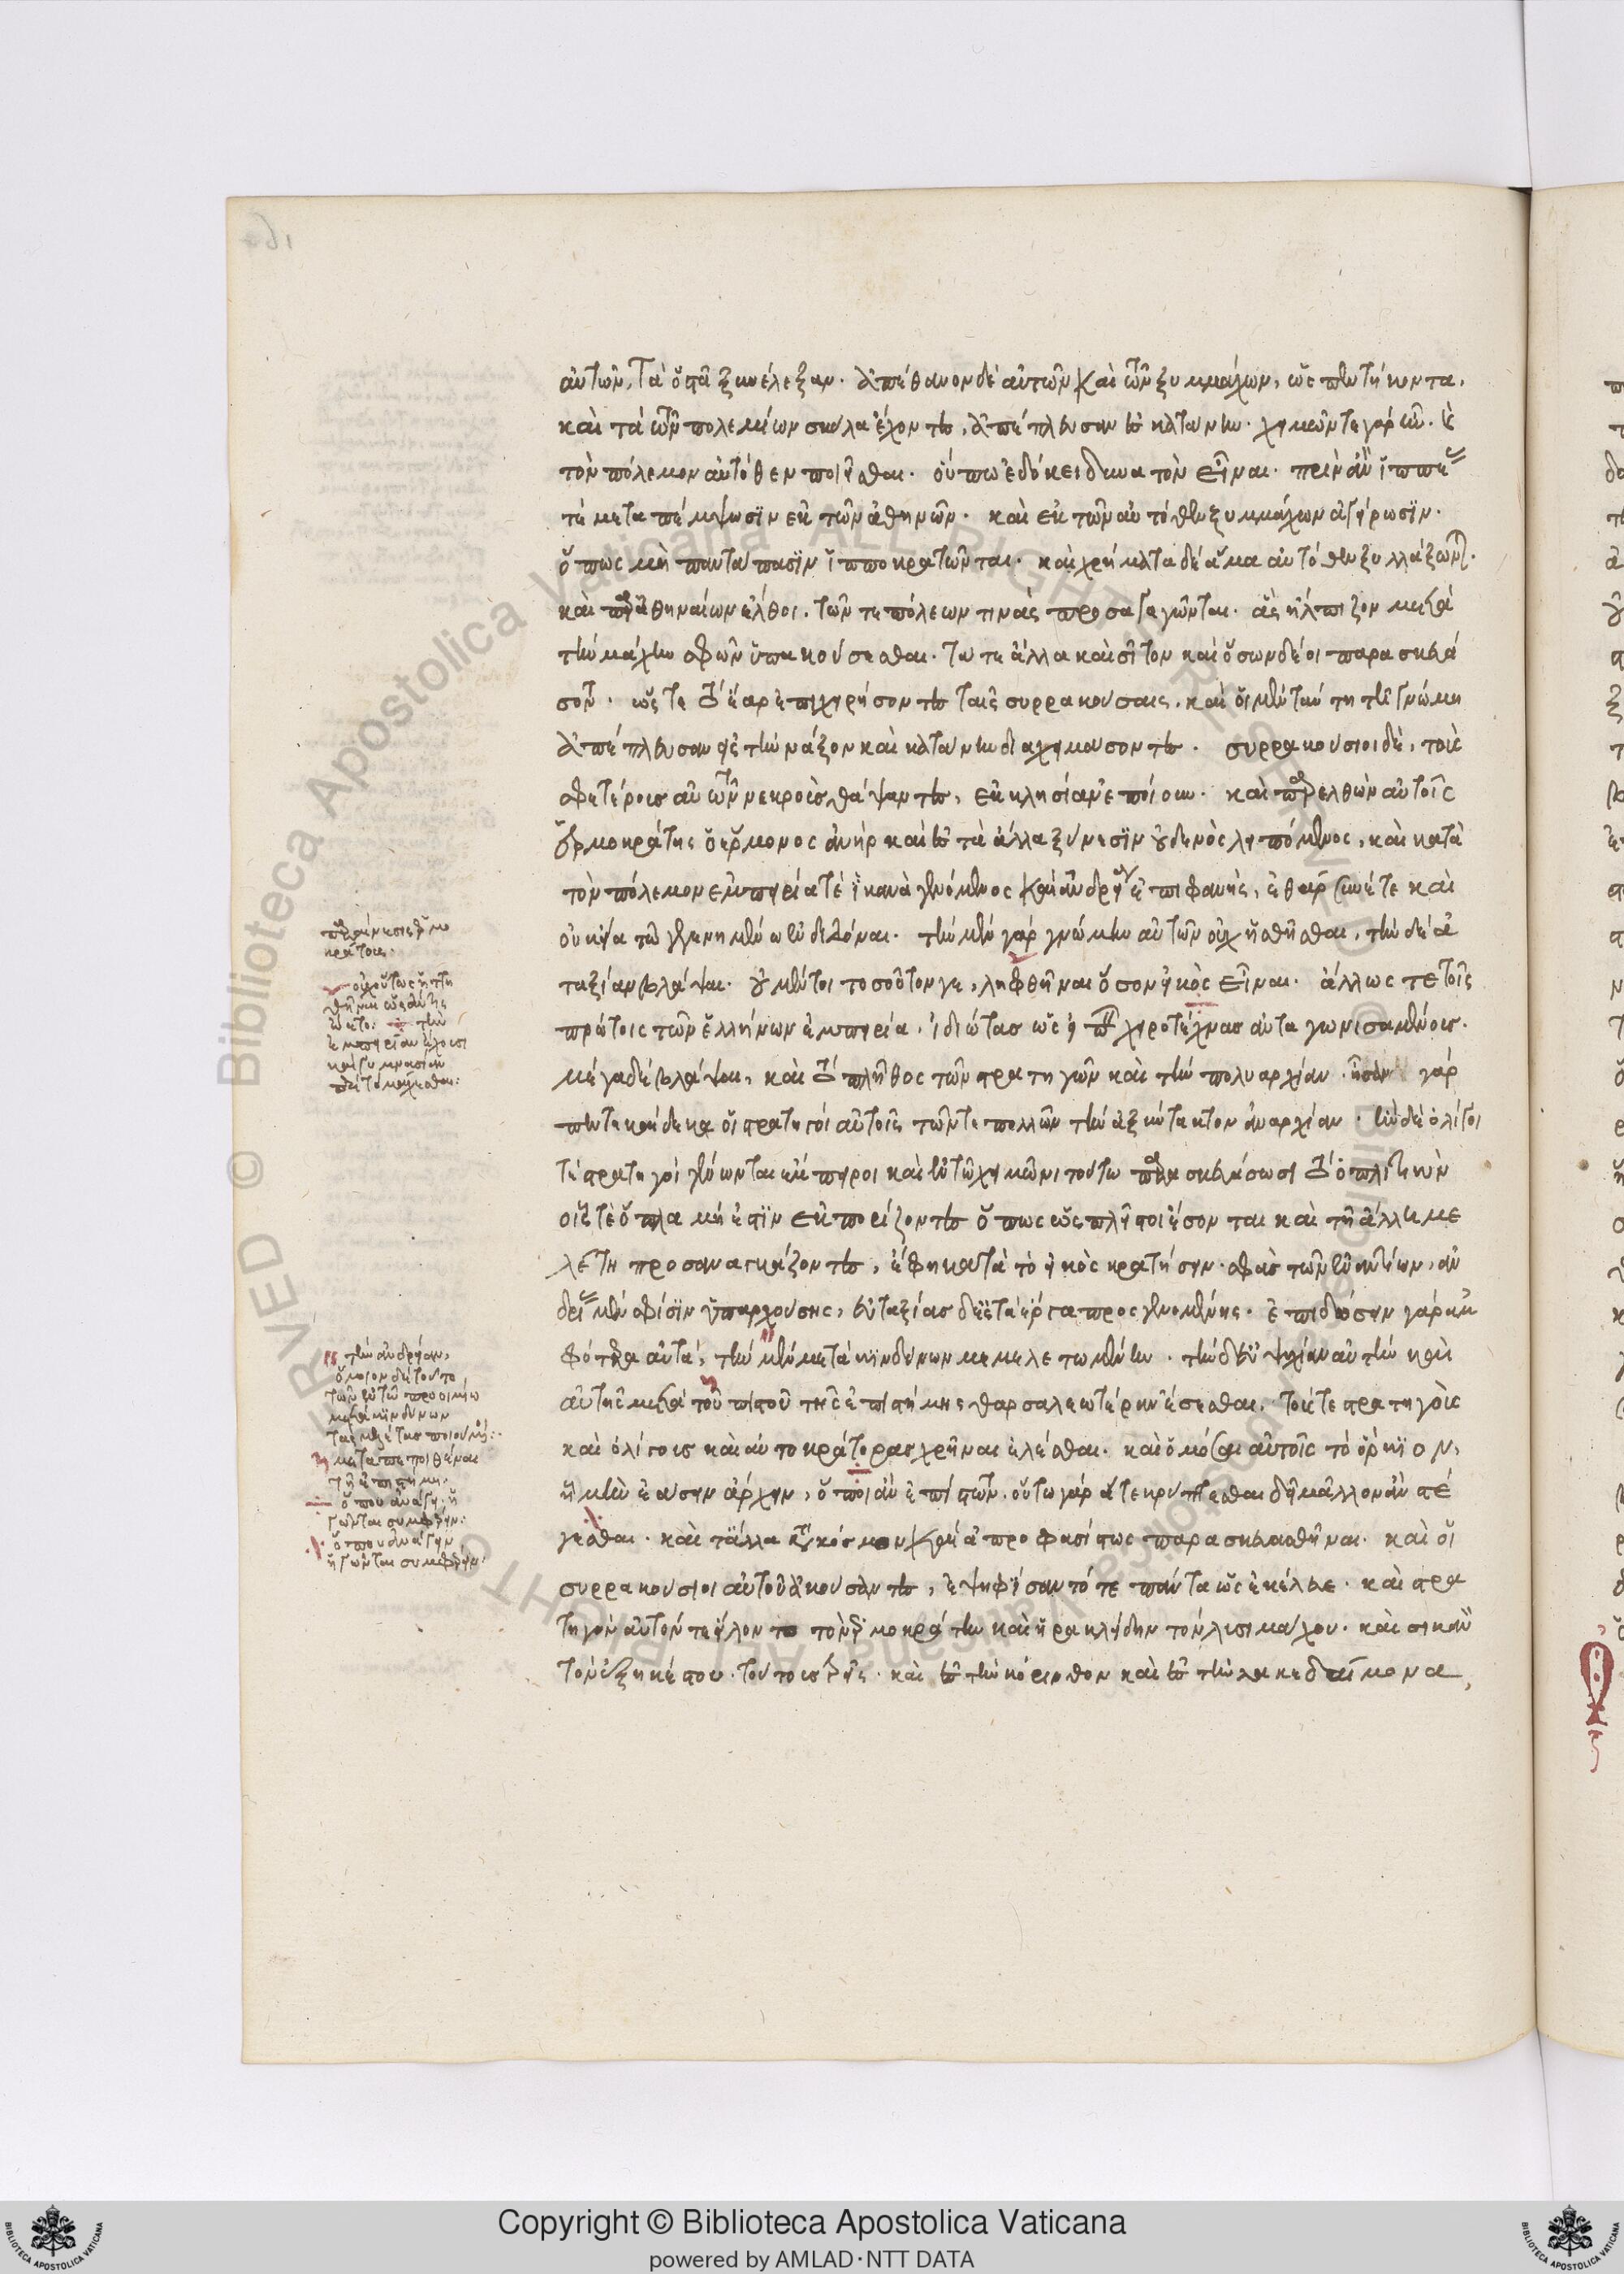 αὐτῶν, τὰ ὀστᾶ ξυνέλεξαν. ἀπέθανον δὲ αὐτῶν καὶ τῶν ξυμμάχων, ὡς πεντήκοντα,
καὶ τὰ τῶν πολεμίων σκῦλα ἔχοντες, ἀπέπλευσαν ἐς κατάνην. χειμών τε γὰρ ἦν. καὶ
τὸν πόλεμον αὐτόθεν ποιεῖσθαι. οὔπω ἐδόκει δυνατὸν εἶναι. πρὶν ἂν ἱππέας
τὲ μεταπέμψωσϊν ἐκ τῶν ἀθηνῶν. καὶ ἐκ τῶν αὐτόθεν ξυμμάχων ἀγείρωσϊν.
ὅπως μὴ παντάπασϊν ἱπποκρατῶνται. καὶ χρήματα δὲ ἅμα αὐτόθεν ξυλλέξωνται.
καὶ παρ' ἀθηναίων ἔλθοι. τῶν τε πόλεών τινας προσαγάγωνται. ἃς ἤλπιζον μετὰ
τὴν μάχην σφῶν ὑπακούσεσθαι. τά τε ἄλλα καὶ σῖτον καὶ ὅσων δέοι παρασκευά
σονται. ὥς τε τὸ ἔαρ ἐπιχειρήσοντες ταῖς συρρακούσαις. καὶ οἱ μὲν ταύτῃ τῇ γνώμῃ
ἀπέπλευσαν ἐς τὴν νάξον καὶ κατάνην διαχειμάσοντες. συρρακούσιοι δὲ, τοὺς
σφετέρους αὐτῶν νεκροὺς θάψαντες, ἐκκλησίαν ἐποίουν. καὶ παρελθὼν αὐτοῖς
ἑρμοκράτης ὁ ἕρμονος ἀνὴρ καὶ ἐς τὰ ἄλλα ξύνεσϊν οὐδενὸς λειπόμενος, καὶ κατὰ
τὸν πόλεμον ἐμπειρίᾳ τὲ ἱκανὰ γενόμενος καὶ ἀνδρείᾳ ἐπιφανής, ἐθάρσυνέ τε καὶ
οὐκ εἴα τῷ γεγενημένῳ ἐνδιδόναι. τὴν μὲν γὰρ γνώμην αὐτῶν οὐχ ἡσσῆσθαι, τὴν δὲ ἀ
ταξίαν βλάψαι. οὐ μέντοι τοσοῦτόν γε, λειφθῆναι ὅσον εἰκὸς εἶναι. ἄλλως τε τοῖς
πρώτοις τῶν ἑλλήνων ἐμπειρίᾳ. ἰδιώτας ὡς εἰπεῖν χειροτέχνας ἀνταγωνισαμένους.
μέγα δὲ βλάψαι, καὶ τὸ πλῆθος τῶν στρατηγῶν καὶ τὴν πολυαρχίαν. ἦσαν γὰρ
πεντεκαίδεκα οἱ στρατηγοὶ αὐτοῖς τῶν τε πολλῶν τὴν ἀξύντακτον ἀναρχίαν. ἢν δὲ ὀλίγοι
τὲ στρατηγοὶ γένωνται ἔμπειροι καὶ ἐν τῷ χειμῶνι τούτῳ παρασκευάσωσι τὸ ὁπλιτικὸν
οἷς τὲ ὅπλα μή ἐστϊν ἐκπορίζοντες ὅπως ὡς πλεῖστοι ἔσονται καὶ τῇ ἄλλῃ με
λέτῃ προσαναγκάζοντες, ἔφη κατὰ τὸ εἰκὸς κρατήσειν. σφᾶς τῶν ἐναντίων, ἀν
δρείας μὲν σφίσϊν ὑπαρχούσης, εὐταξίας δ' ἐς τὰ ἔργα προσγενομένης. ἐπιδώσειν γὰρ ἀμ
φότερα αὐτά, τὴν μὲν μετὰ κϊνδύνων μεμελετωμένην. τὴν δ' εὐψυχίαν αὐτὴν καὶ
αὑτῆς μετὰ τοῦ πιστοῦ τῆς ἐπιστήμης θαρσαλεωτέρην ἔσεσθαι. τούς τε στρατηγοὺς
καὶ ὀλίγους καὶ αὐτοκράτορας χρῆναι ἑλέσθαι. καὶ ὀμόσαι αὐτοῖς τὸ ὅρκϊον,
ἦ μὴν ἐάσειν ἄρχειν, ὅποι ἂν ἐπίστωνται. οὕτω γὰρ ἅ τε κρύπτεσθαι δεῖ μᾶλλον ἂν στέ
γεσθαι. καὶ τἄλλα κατὰ κόσμον καὶ ἀπροφασίστως παρασκευασθῆναι. καὶ οἱ
συρρακούσιοι αὐτοῦ ἀκούσαντες, ἐψηφίσαντό τε πάντα ὡς ἐκέλευε. καὶ στρα
τηγὸν αὐτόν τε εἵλοντο τὸν ἑρμοκράτην καὶ ἡρακλείδην τὸν λυσιμάχου. καὶ σικανὸν
τὸν ἐξηκέστου. τούτους τρεῖς. καὶ ἐς τὴν κόρινθον καὶ ἐς τὴν λακεδαίμονα,
παραίνεσις ἑρμο
κράτους.
οὐχ οὕτως ἡττη
θῆναι ὡς αὐτὸς
ᾤετο: τὴν
ἐμπειρίαν ἔχουσι
καὶ γυμνασίαν
περὶ τὸ μάχεσθαι:
τὴν ἀνδρείαν,
ὅμοιον δὲ τοῦτο
τῶν ἐν τῷ προοιμίῳ
μετὰ κϊνδύνων
τὰς μελέτας ποιούμενοι:
μετὰ πεποιθέναι
τῇ ἐπιστήμῃ.
ὅπου ἀνάγειν ἡ
γῶνται συμφέρειν:
ὅπου ἀνάγειν
ἡγῶνται συμφέρειν: